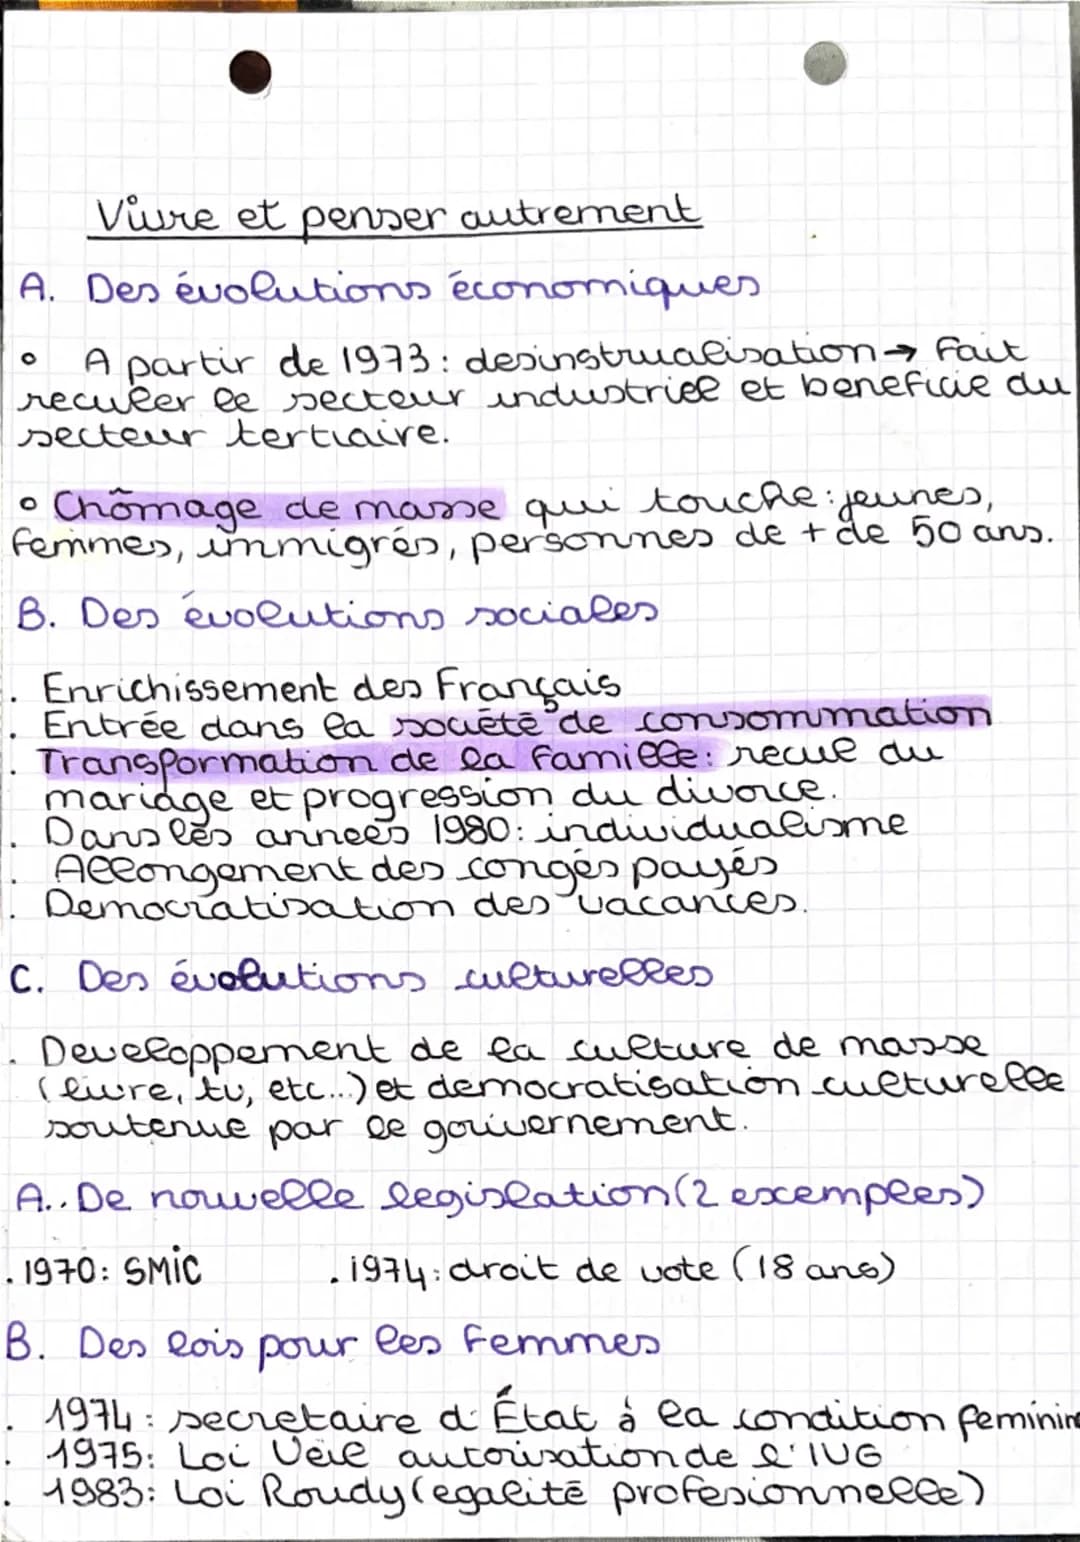 Vivre et penser autrement
A. Des évolutions économiques
• A partir de 1973 : desinstrualisation → Fait
reculer le secteur industriel et beneficie du
secteur tertiaire.
• Chômage de masse qui touche : jeunes,
femmes, immigrés, personnes de + de 50 ans.
B. Des évolutions sociales
. Enrichissement des Français
. Entrée dans la société de consommation
. Transformation de la famille : recul du
mariage et progression du divorce.
. Dans les années 1980 : individualisme
. Allongement des congés payés
. Democratisation des vacances.
C. Des évolutions culturelles
. Developpement de la culture de masse
(livre, tv, etc...) et democratisation culturelle
soutenue par le gouvernement.
A.. De nouvelle legislation (2 exemples)
. 1970 : SMIC . 1974 : droit de vote (18 ans)
B. Des lois pour les femmes
. 1974 : secretaire d'État à la condition feminine
. 1975 : Loi Veil autorisation de l'IVG
. 1983 : Loi Roudy (egalité profesionnelle)